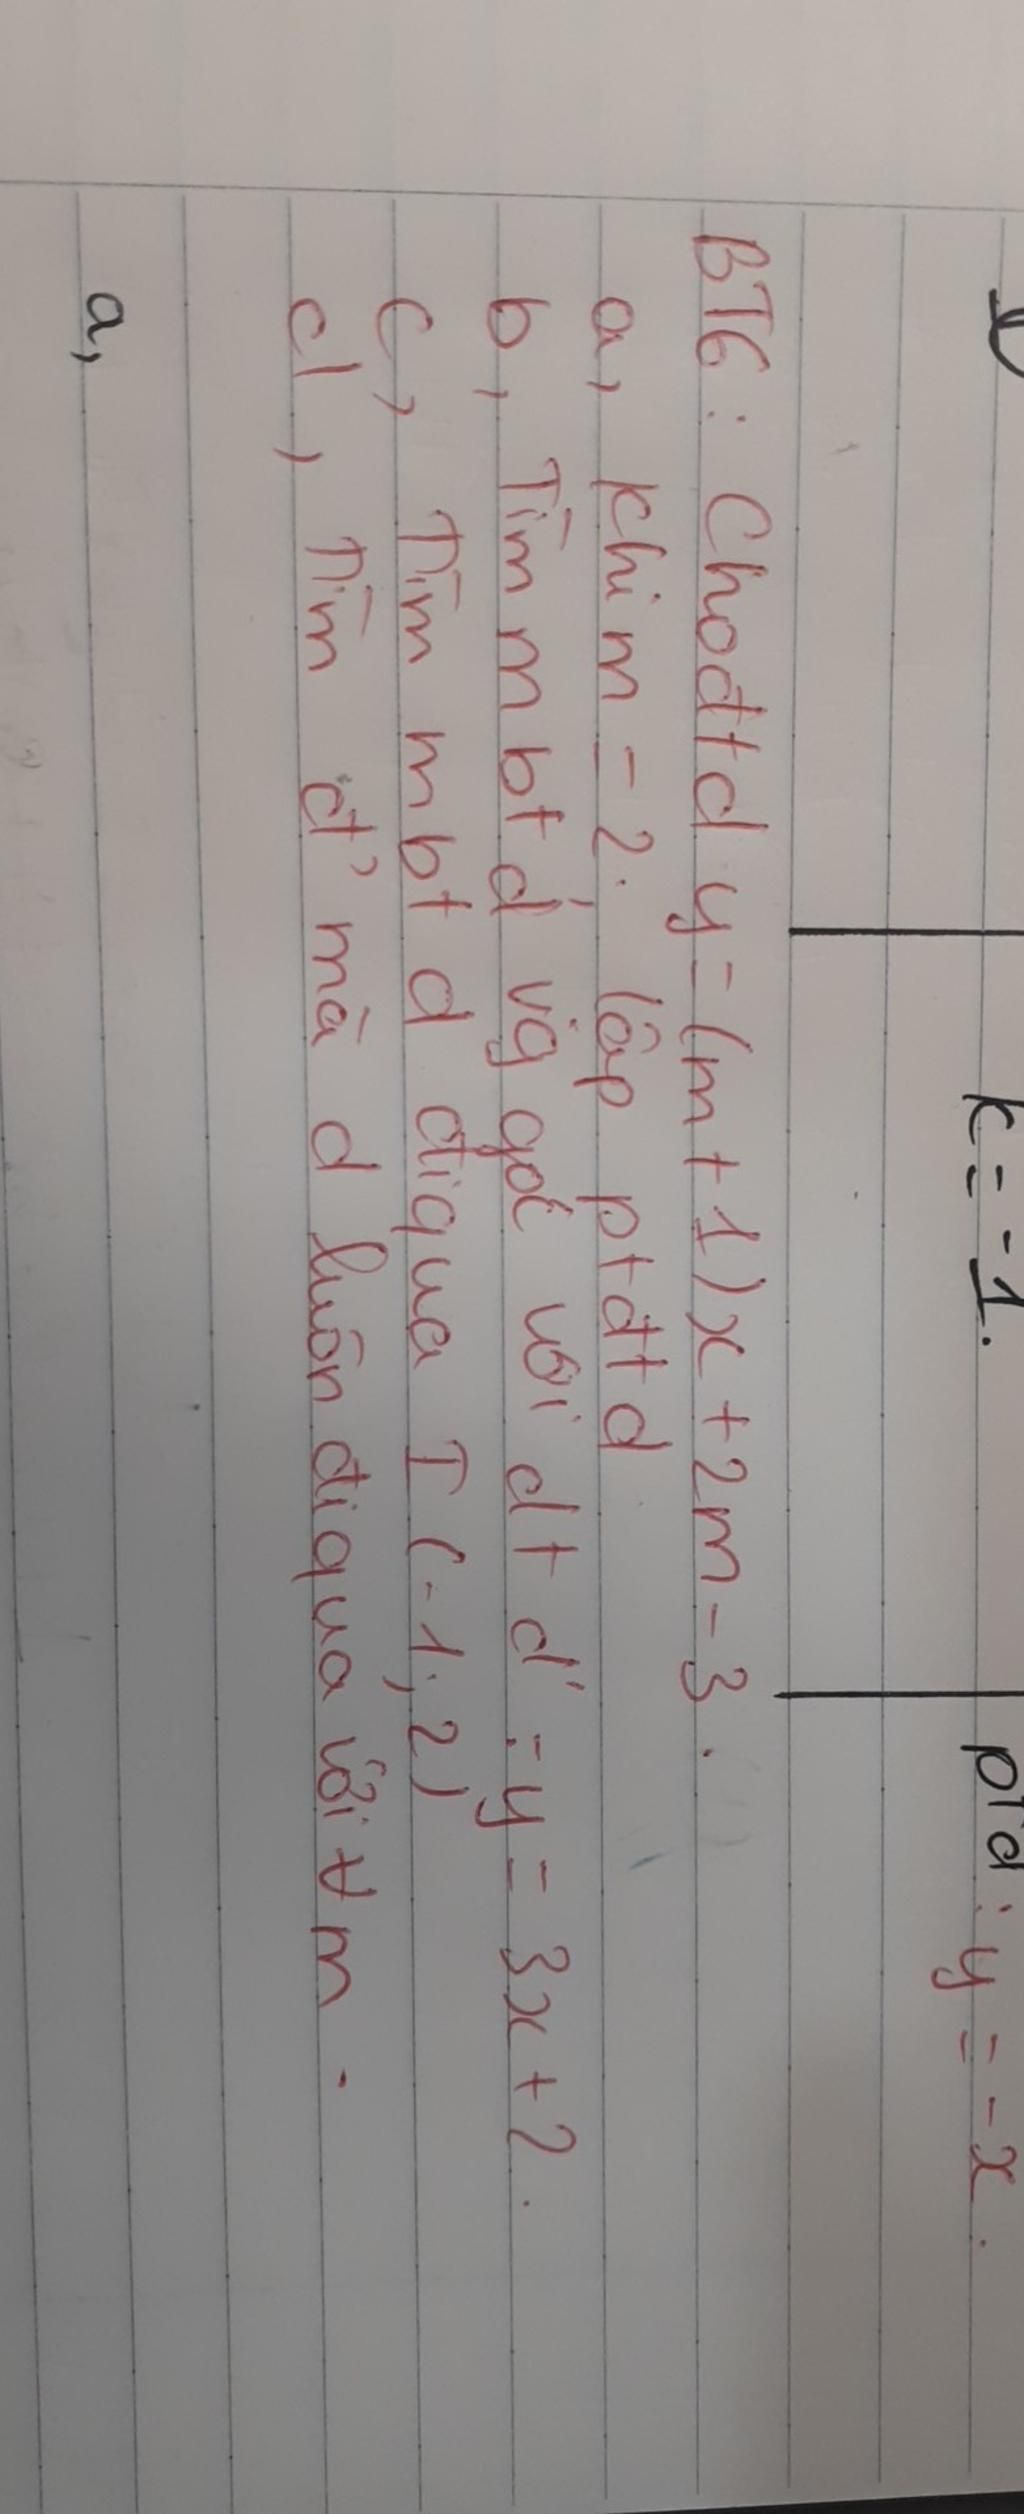 k = -1.
ptd : y = -x.
BT6 : Cho đt d y = (m + 1)x + 2m - 3.
a, khi m = 2. lập ptđt d
b, Tìm m bt d vg góc với dt d' : y = 3x + 2.
c, Tìm m bt d đi qua I (-1, 2)
d, Tìm đ' mà d luôn đi qua với ∀m.
a,